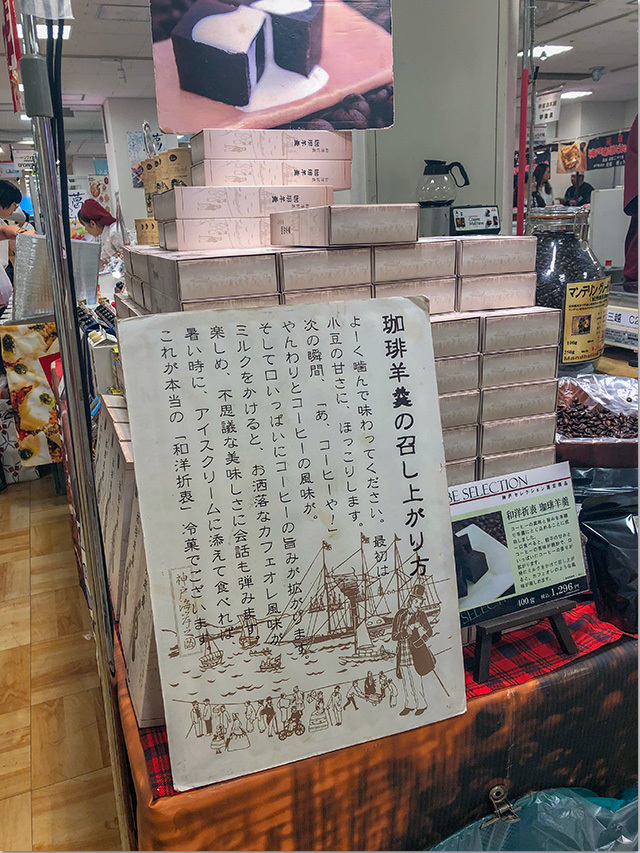 珈琲羊羹の召し上がり方
よーく噛んで味わってください。最初は
小豆の甘さに、ほっこりします。
次の瞬間、「あ、コーヒーや!」
やんわりとコーヒーの風味が。
そして口いっぱいにコーヒーの旨みが拡がります。
ミルクをかけると、お洒落なカフェオレ風味が
楽しめ、不思議な美味しさに会話も弾みます。
暑い時に、アイスクリームに添えて食べれば
これが本当の「和洋折衷」冷菓でございます。
珈琲羊羹
珈琲羊羹
珈琲羊羹
BE SELECTION
神戸セレクション選定商品
和洋折衷 珈琲羊羹
400g 税込 1,296円
マンデリン
三越